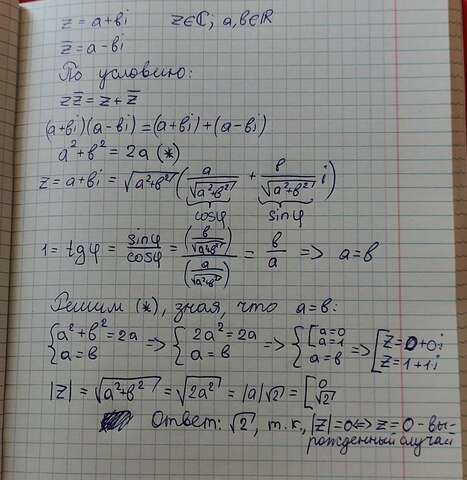 z = a+bi    z∈ℂ; a,b∈ℝ
z̅ = a-bi
По условию:
zz̅ = z + z̅
(a+bi)(a-bi) = (a+bi)+(a-bi)
a²+b² = 2a (*)
z = a+bi = √(a²+b²) ( a/√(a²+b²) + b/√(a²+b²) i )
cosφ    sinφ
1 = tgφ = sinφ/cosφ = (b/√(a²+b²))/(a/√(a²+b²)) = b/a => a=b
Решим (*), зная, что a=b:
{a²+b²=2a; a=b => {2a²=2a; a=b => {[a=0; a=1; a=b => [z=0+0i; z=1+1i
|z| = √(a²+b²) = √(2a²) = |a|√2 = [0; √2
Ответ: √2, т.к. |z|=0<=> z=0-вы-
рожденный случай